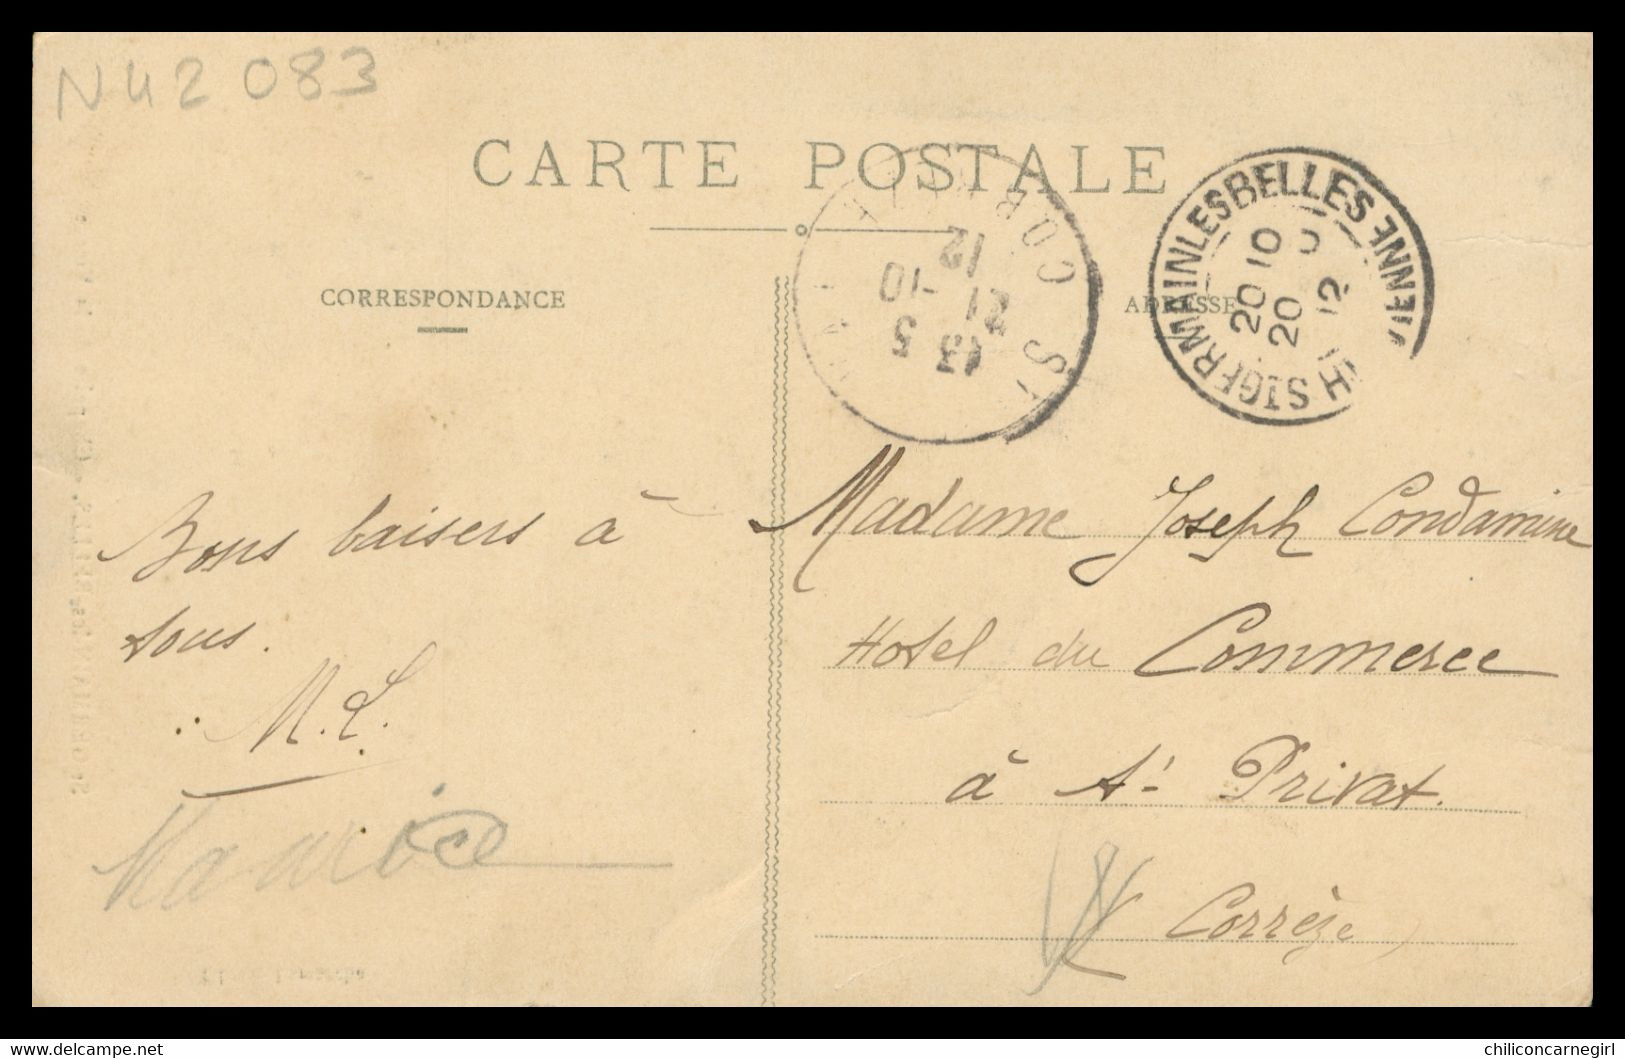 N42 083
CARTE POSTALE
CORRESPONDANCE
ADRESSE
ST GERMAIN LES BELLES
Hte VIENNE
20 10
20
12
13 5
21 -10
12
Bons baisers à
tous.
M.L.
Maurice
Madame Joseph Condamine
Hotel du Commerce
à St- Privat.
Corrèze
www.delcampe.net
chiliconcarnegirl